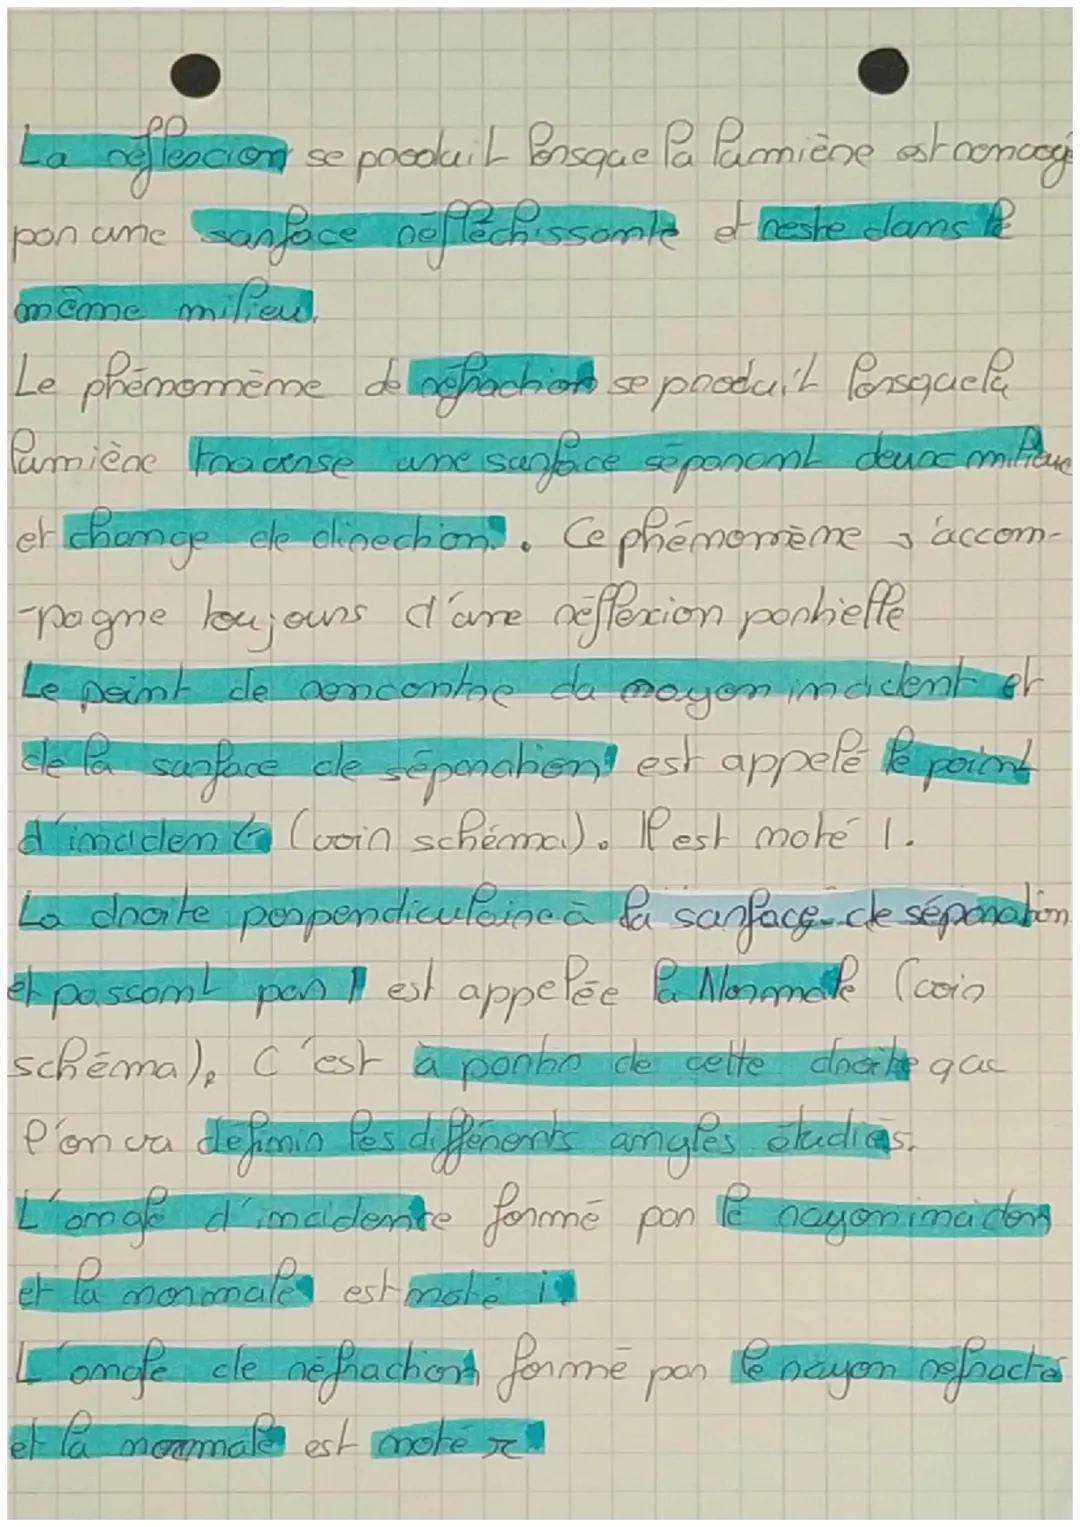 La réflexion se produit lorsque la lumière est renvoyé
par une surface réfléchissante et reste dans le
même milieu.
Le phénomème de réfraction se produit lorsque la
lumière traverse une surface séparant deux milieux
et change de direction. Ce phénomème s'accom-
-pagne toujours d'une réflexion partielle
Le point de rencontre du rayon incident et
de la surface de séparation est appelé le point
d'incident (voir schéma). Il est noté I.
La droite perpendiculaire à la surface de séparation
et passant par I est appelée la Normale (voir
schéma). C'est à partir de cette droite que
l'on va définir les différents angles étudiés.
L'angle d'incidente formé par le rayon incident
et la normale est noté i.
L'angle de réfraction formé par le rayon réfracté
et la normale est noté r